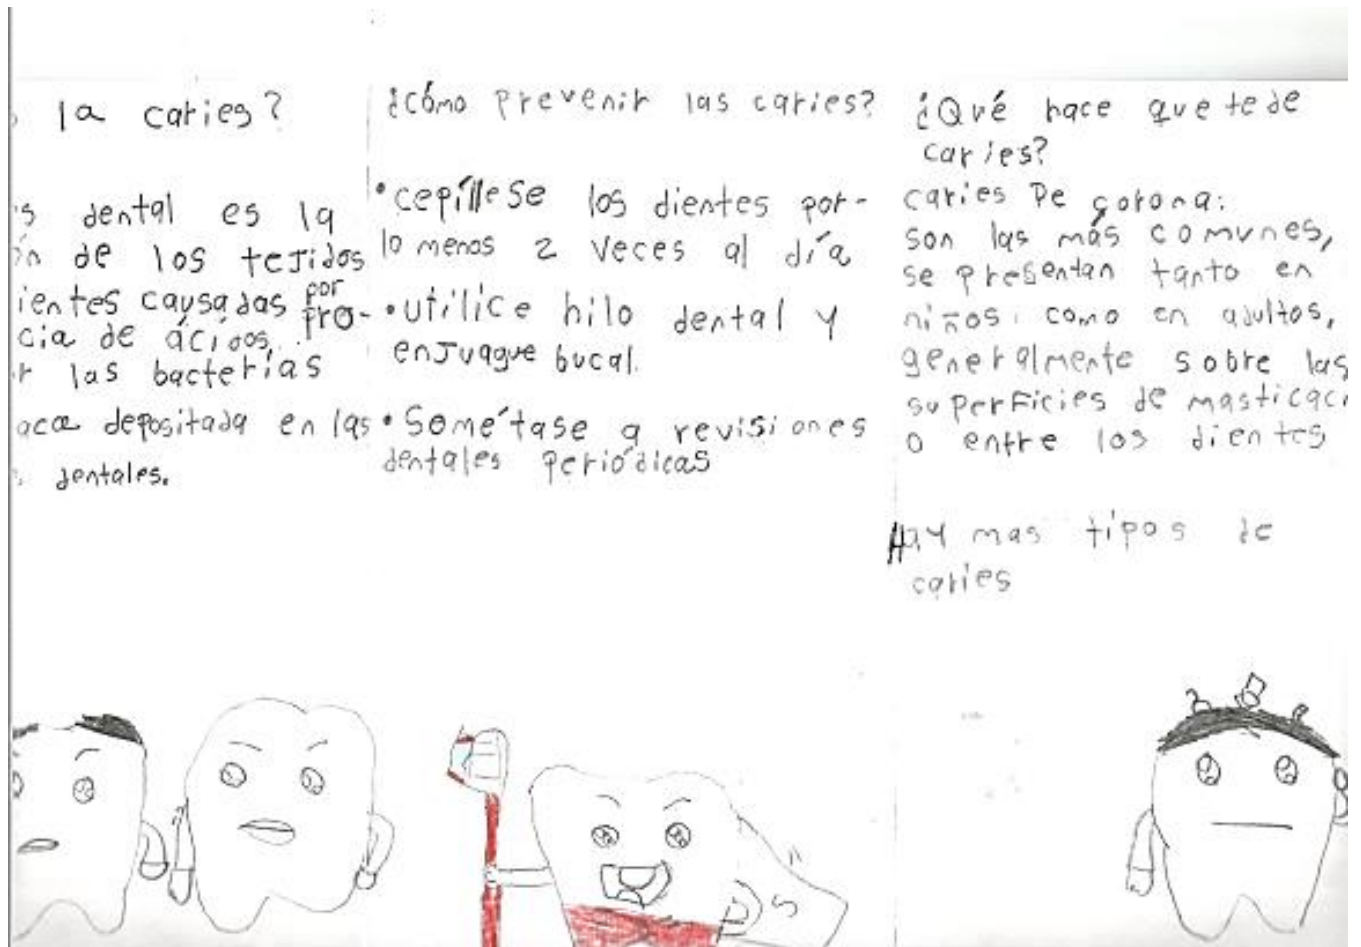 la caries?
dental es la
de los tejidos
causadas por
pro-
de ácidos,
las bacterias
depositada en las
dentales.
¿cómo prevenir las caries?
•cepíllese los dientes por-
lo menos 2 veces al día
•utilice hilo dental y
enjuague bucal.
•Sométase a revisiones
dentales periódicas
¿Qué hace que te de
caries?
caries De corona:
son las más comunes,
se presentan tanto en
niños como en adultos,
generalmente sobre las
superficies de masticaci
o entre los dientes
Hay mas tipos de
caries
S